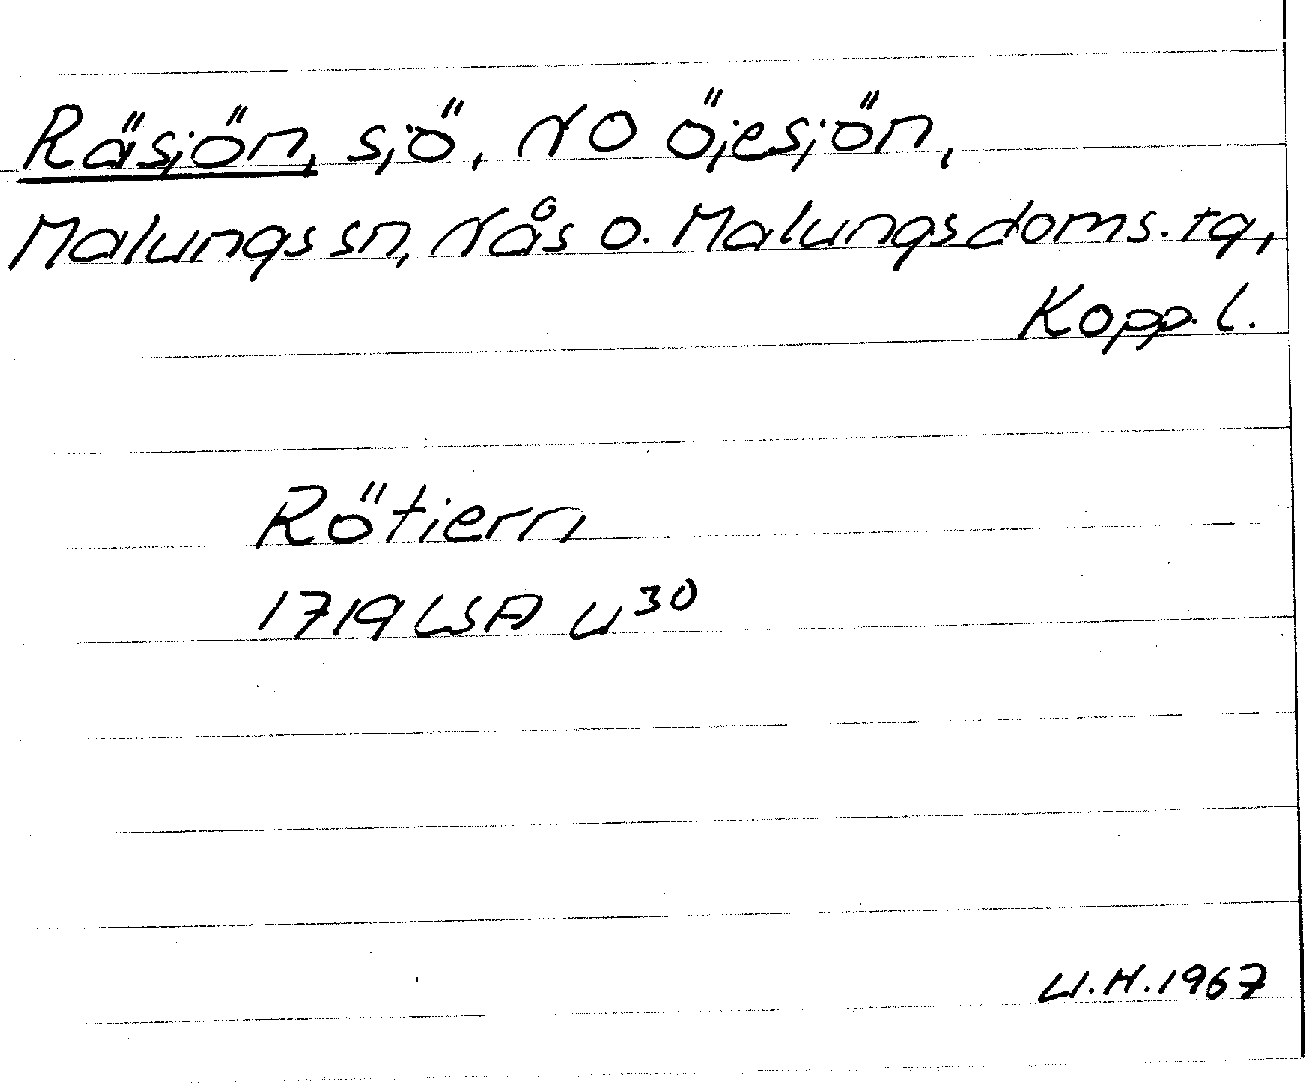 Räsjön, sjö, NO Öjesjön,
Malungs sn, Nås o. Malungs doms. tg,
Kopp. l.
Rötiern
1719 LSA U³⁰
U.H. 1967